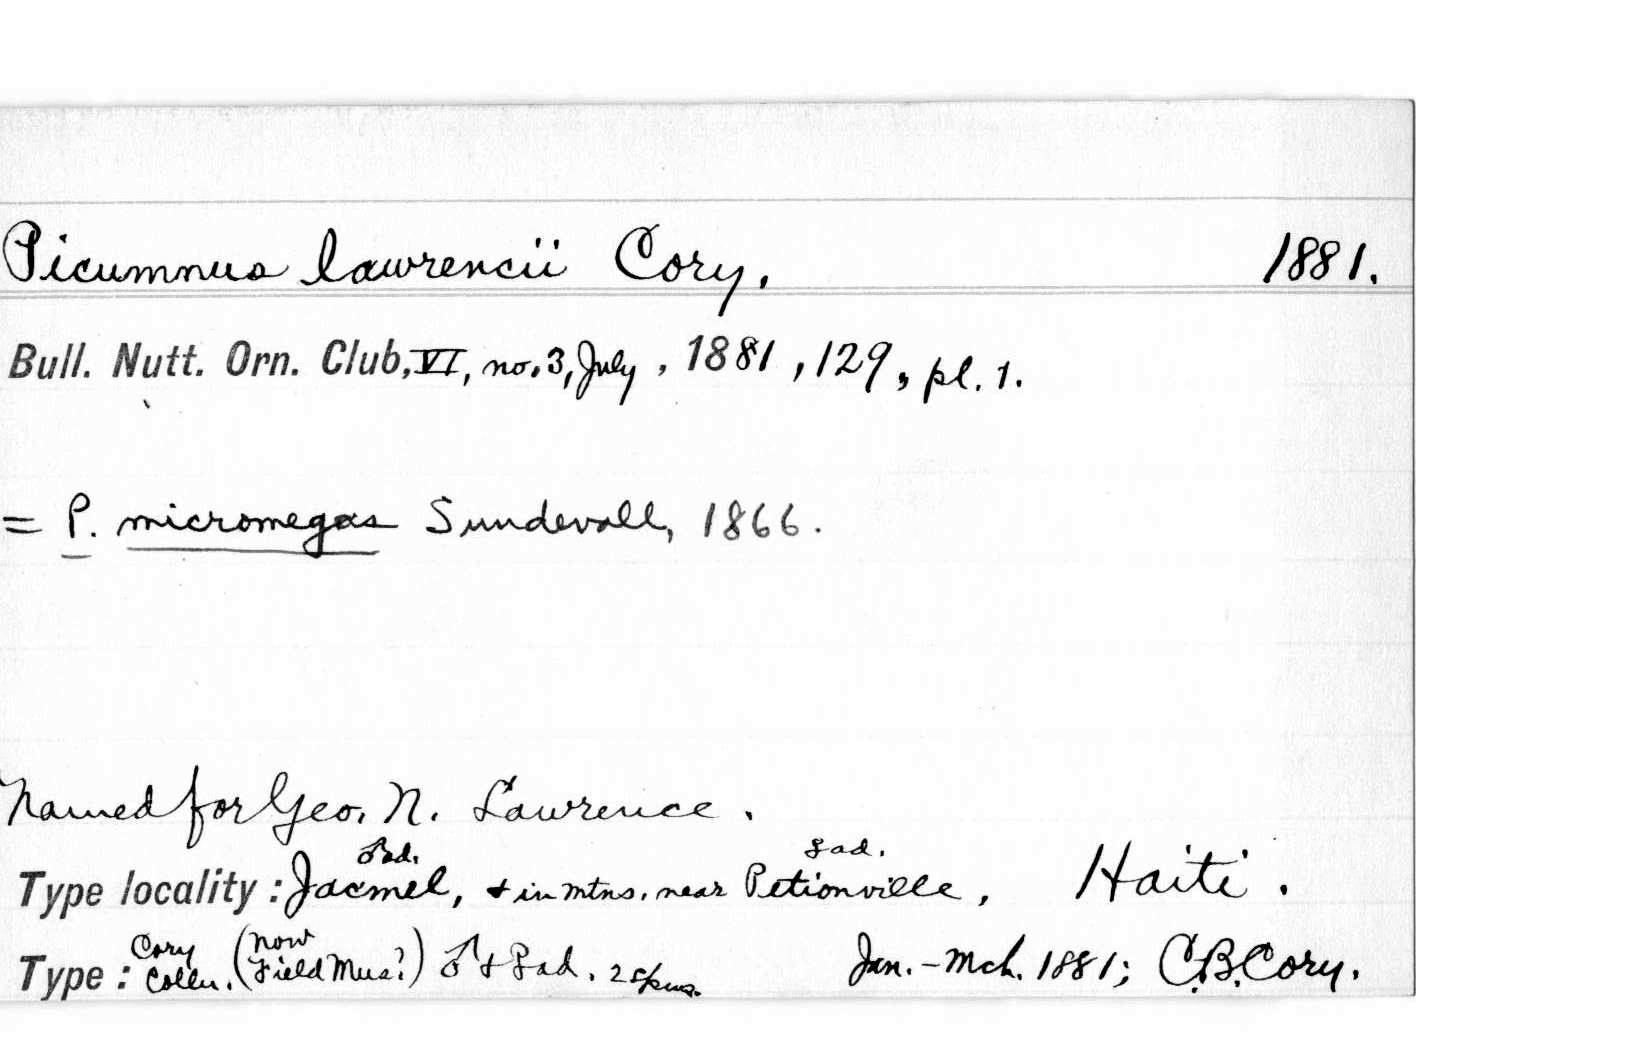 Picumnus lawrencii Cory, 1881.
Bull. Nutt. Orn. Club, VI, no. 3, July, 1881, 129, pl. 1.
= P. micromegas Sundevall, 1866.
Named for Geo. N. Lawrence.
♂ad. ♀ad.
Type locality: Jacmel, + in mtns. near Petionville, Haiti.
Cory (now
Type: Colln. Field Mus?) ♂ + ♀ ad. 2 spms. Jan.-Mch. 1881; C.B. Cory.